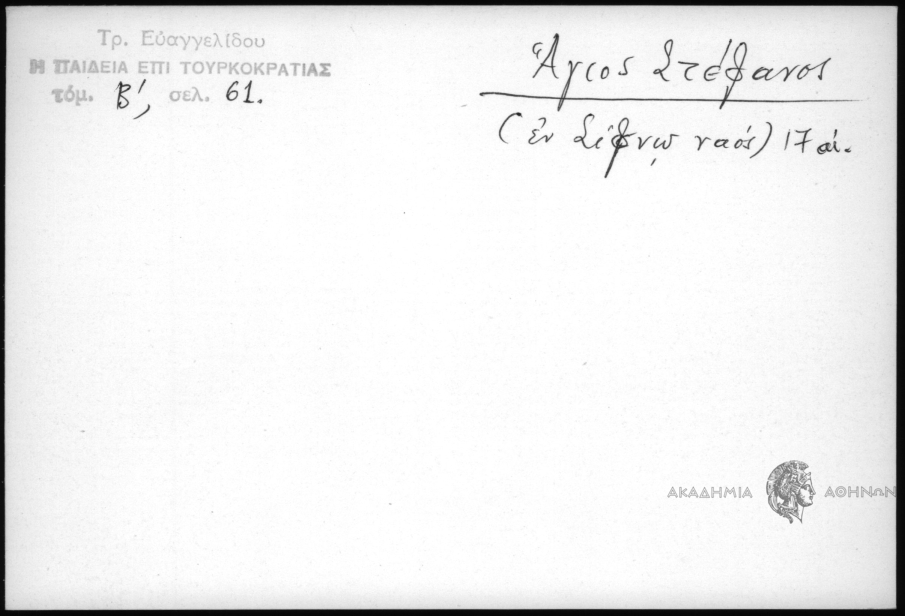 Τρ. Εὐαγγελίδου
Η ΠΑΙΔΕΙΑ ΕΠΙ ΤΟΥΡΚΟΚΡΑΤΙΑΣ
τόμ. Β΄, σελ. 61.
Ἅγιος Στέφανος
(ἐν Σίφνῳ ναός) 17 αἰ.
ΑΚΑΔΗΜΙΑ ΑΘΗΝΩΝ